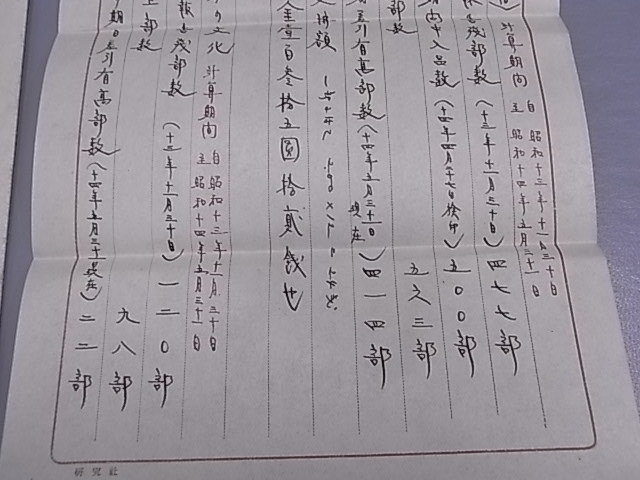 計算期間 自 昭和十三年十一月三十日
至 昭和十四年五月三十一日
報告残部数(十三年十一月三十日)四七七部
内中入品数(十四年四月二十七日検印)五〇〇部
部数 五六三部
差引有高部数(十四年五月三十日現在)四一四部
金壹百叁拾五圓拾貳銭也
文化 計算期間 自 昭和十三年十一月三十日
至 昭和十四年五月三十一日
報告残部数(十三年十一月三十日)一二〇部
上部数 九八部
期日差引有高部数(十四年五月三十日現在)二二部
研究社